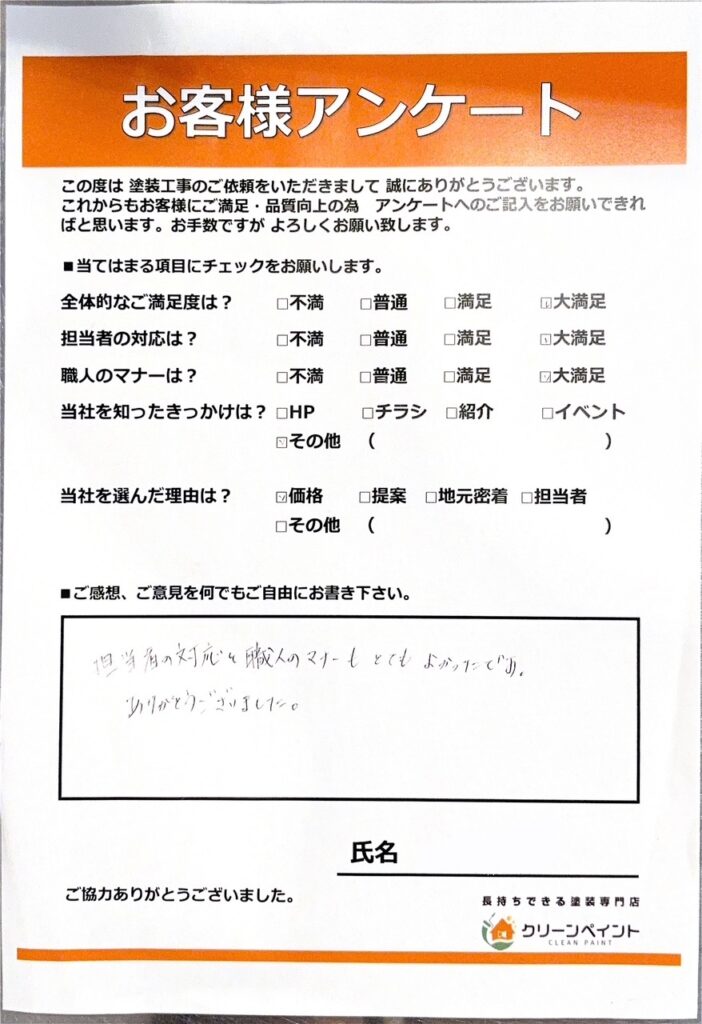 お客様アンケート
この度は 塗装工事のご依頼をいただきまして 誠にありがとうございます。
これからもお客様にご満足・品質向上の為　アンケートへのご記入をお願いできれ
ばと思います。お手数ですが よろしくお願い致します。
■当てはまる項目にチェックをお願いします。
全体的なご満足度は？ □不満 □普通 □満足 ☑大満足
担当者の対応は？ □不満 □普通 □満足 ☑大満足
職人のマナーは？ □不満 □普通 □満足 ☑大満足
当社を知ったきっかけは？ □HP □チラシ □紹介 □イベント
☑その他 （ ）
当社を選んだ理由は？ ☑価格 □提案 □地元密着 □担当者
□その他 （ ）
■ご感想、ご意見を何でもご自由にお書き下さい。
担当者の対応も職人のマナーも とても よかったです。
ありがとうございました。
氏名
ご協力ありがとうございました。
長持ちできる塗装専門店
クリーンペイント
CLEAN PAINT